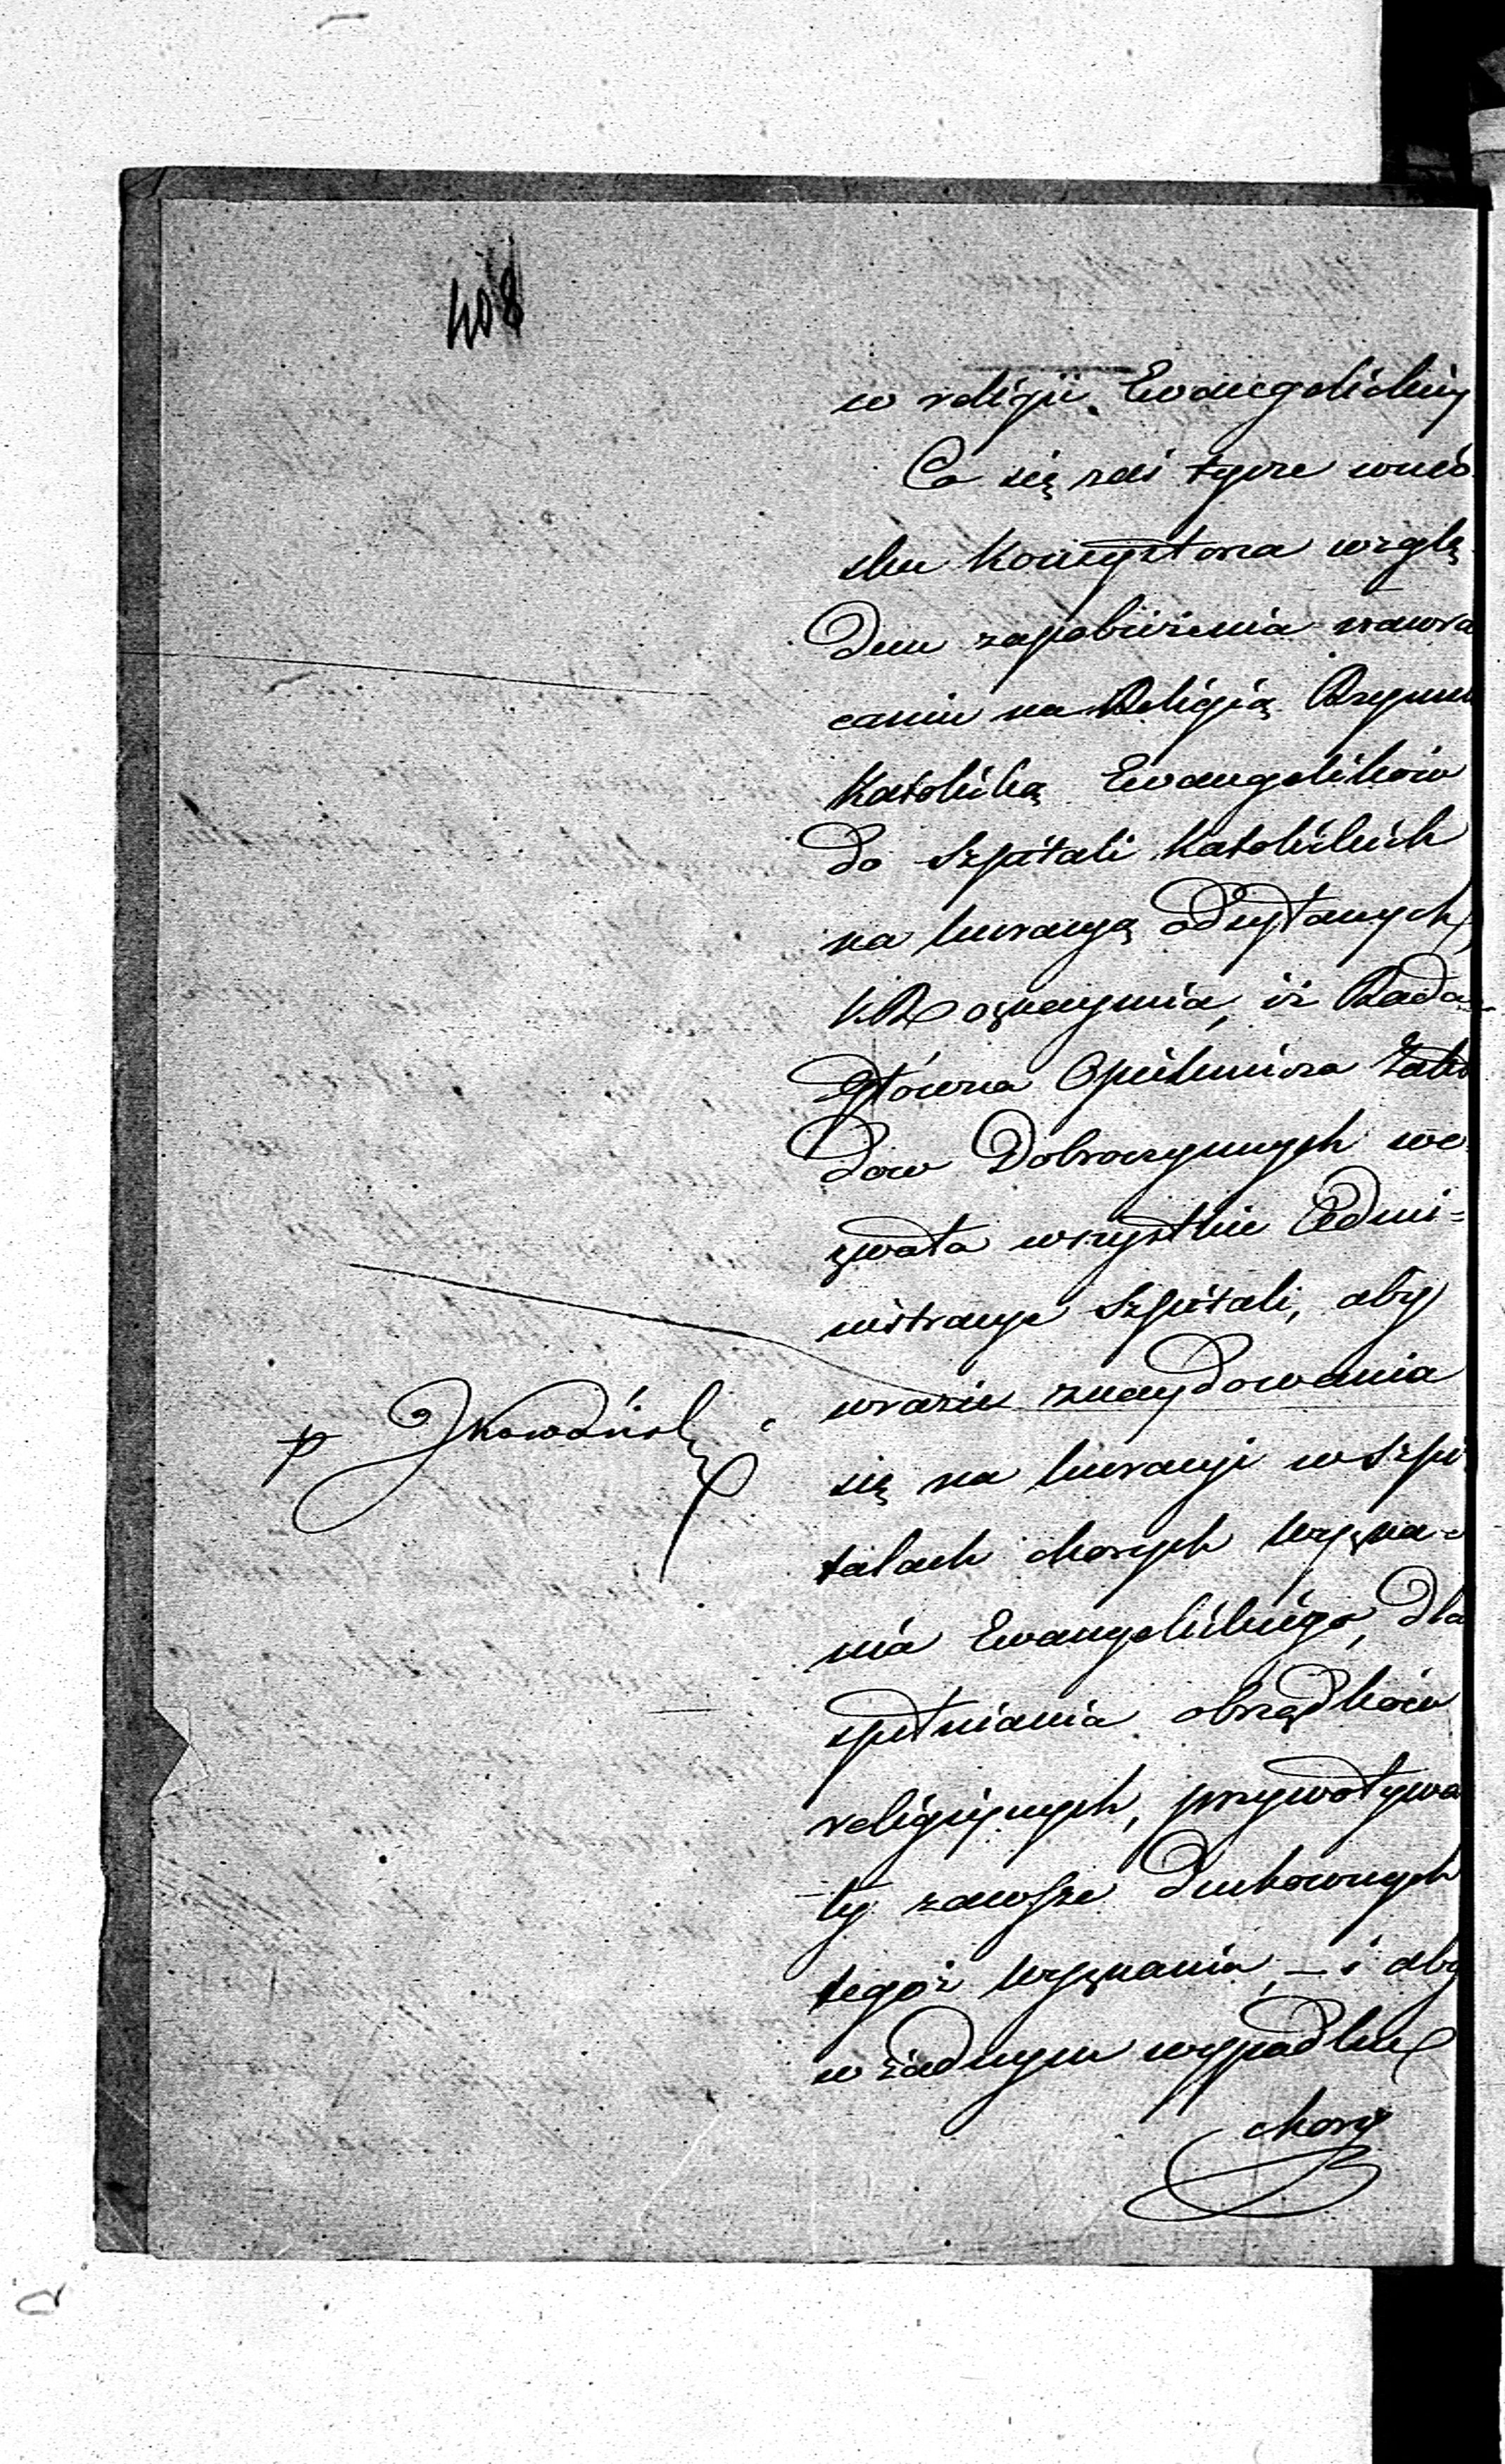 408
w religii Ewangelickiéy
Co się zaś tycze wnio
sku Konsystorza wzglę
dem zapobieżenia nawra
caniu na Religią Rzymsk
Katolicką Ewangelików
do Szpitali Katolickich
na kuracyą odsyłanych,
K.R. oznaymia, iż Rada
Główna Opiekuńcza Zakła
dów Dobroczynnych we
zwała wszystkie Admi=
nistracye Szpitali, aby
w razie znaydowania
się na kuracyi w Szpi
talach chorych wyzna=
nia Ewangelickiego, dla
spełniania obrządków
religiynych, przywoływa
ły zawsze Duchownych
tegoż wyznania, – i aby
w żadnym wypadku
chory